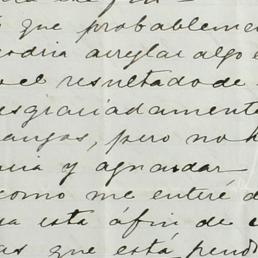 que probablemen
odria arreglar algo e
el resultado de
esgraciadamente
angas, pero no h
y aguardar
como me enteré d
esta áfin de
as que está pend